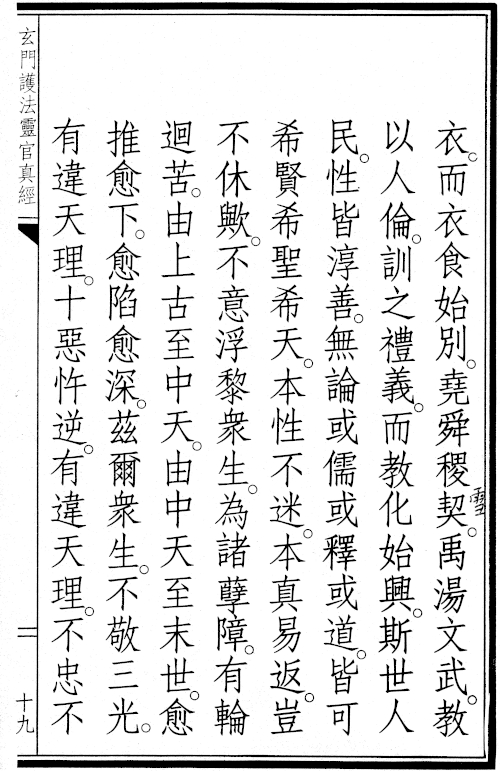 衣。而衣食始別。堯舜稷契。禹湯文武。教
雪
以人倫。訓之禮義。而教化始興。斯世人
民。性皆淳善。無論或儒或釋或道。皆可
希賢希聖希天。本性不迷。本真易返。豈
不休歟。不意浮黎衆生。為諸孽障。有輪
迴苦。由上古至中天。由中天至末世。愈
推愈下。愈陷愈深。茲爾衆生。不敬三光。
有違天理。十惡忤逆。有違天理。不忠不
玄門護法靈官真經
二
十九